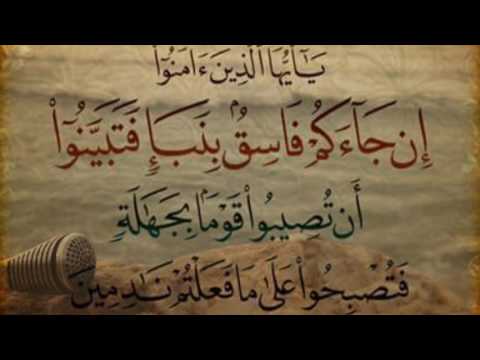 يَٰٓأَيُّهَا ٱلَّذِينَ ءَامَنُوٓا۟
إِن جَآءَكُمْ فَاسِقٌۢ بِنَبَإٍ فَتَبَيَّنُوٓا۟
أَن تُصِيبُوا۟ قَوْمًۢا بِجَهَٰلَةٍ
فَتُصْبِحُوا۟ عَلَىٰ مَا فَعَلْتُمْ نَٰدِمِينَ